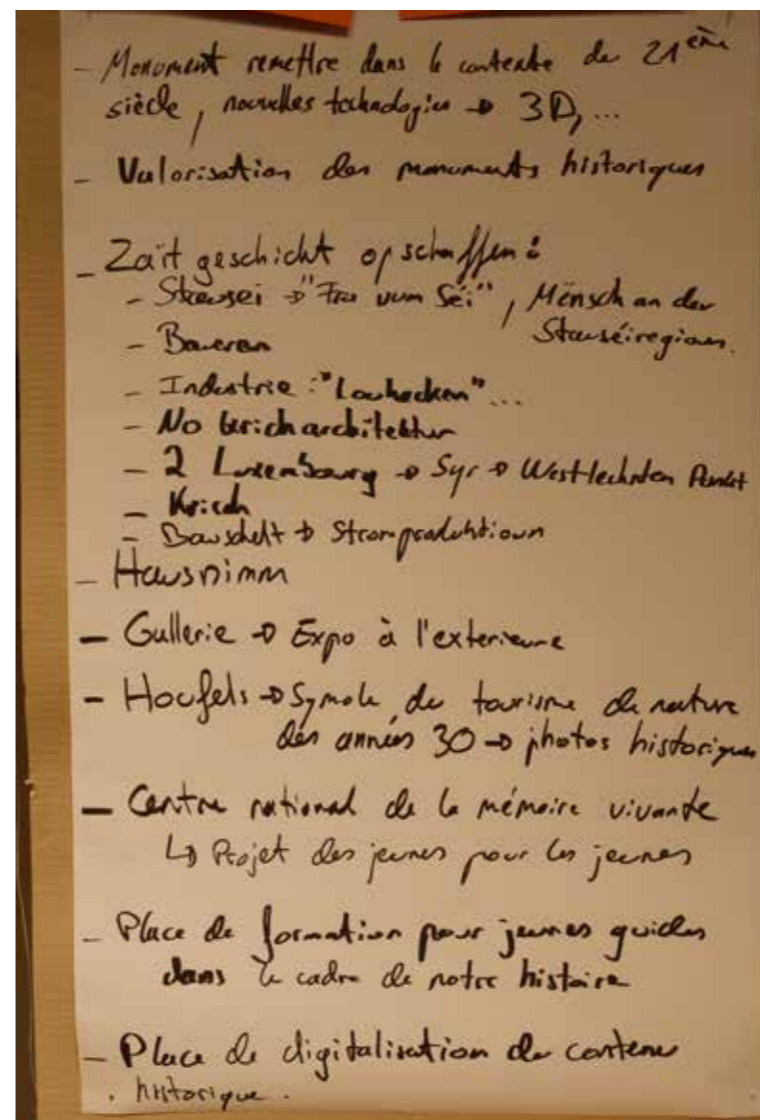 - Monument remettre dans le contexte du 21ème
siècle, nouvelles technologies → 3D, ...
- Valorisation des monuments historiques
- Zäit geschicht opschaffen:
- Stauséi → "Fra vum Séi", Mënsch an der
Stauséiregioun.
- Baueren
- Industrie: "Louhecken" ...
- No architektur
- 2 Luxembourg → Syr → Westlechsten Punkt
- Krich
- Bauschelt → Stromproduktioun
- Hausnimm
- Gallerie → Expo à l'exterieure
- Houfels → Symole du tourisme de nature
des années 30 → photos historiques
- Centre national de la mémoire vivante
↳ Projet des jeunes pour les jeunes
- Place de formation pour jeunes guides
dans le cadre de notre histoire
- Place de digitalisation de contenu
historique.